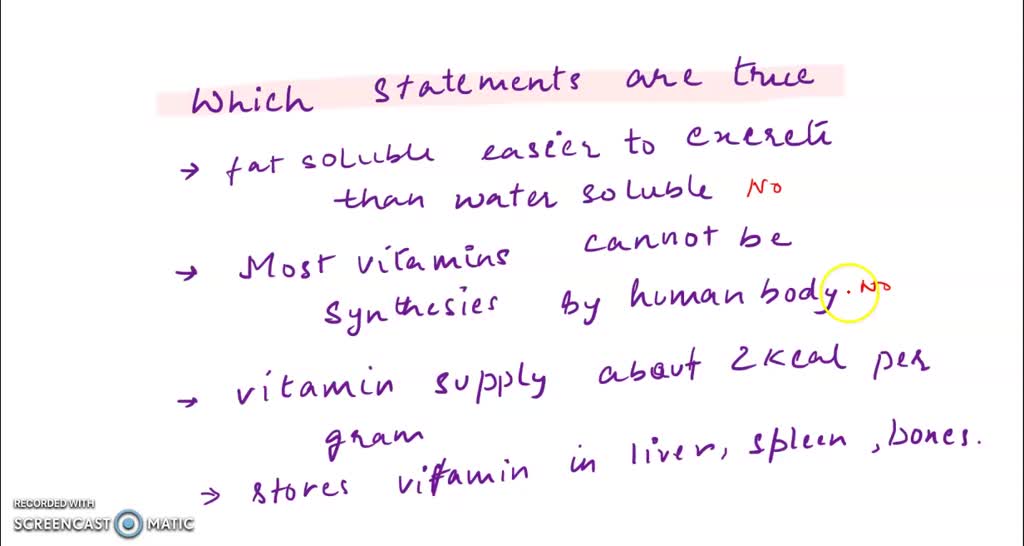 Which statements are true
→ fat soluble easier to excrete
than water soluble No
→ Most vitamins cannot be
synthesies by human body. No
→ vitamin supply about 2 kcal per
gram
→ stores vitamin in liver, spleen, bones.
RECORDED WITH
SCREENCAST MATIC